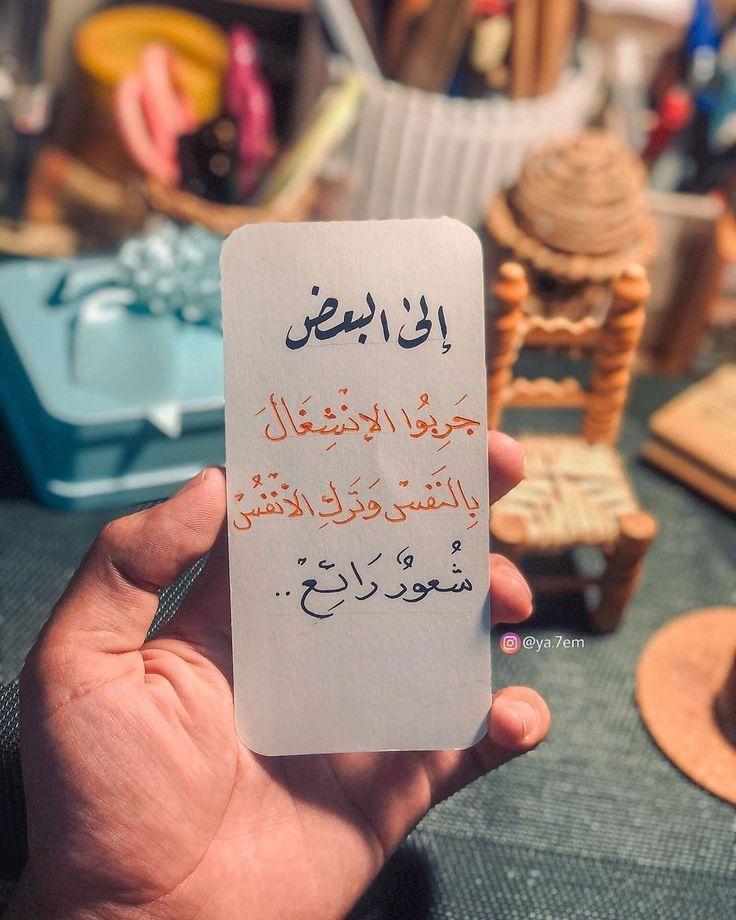 إلىٰ البعض
جَرِبُوا الاِنْشِغَالَ
بِالنَفَسْ وَتَركِ الأنْفُسْ
شُعورٌ رَائِعْ ..
@ya.7em